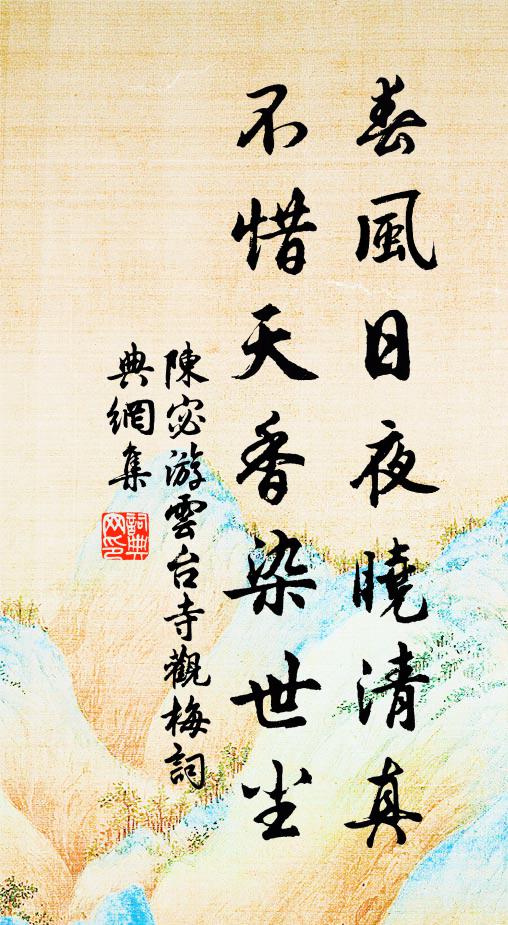 春風日夜曉清真
不惜天香染世尘
陳宓游雲台寺觀梅詞
典網集
詞典
网印